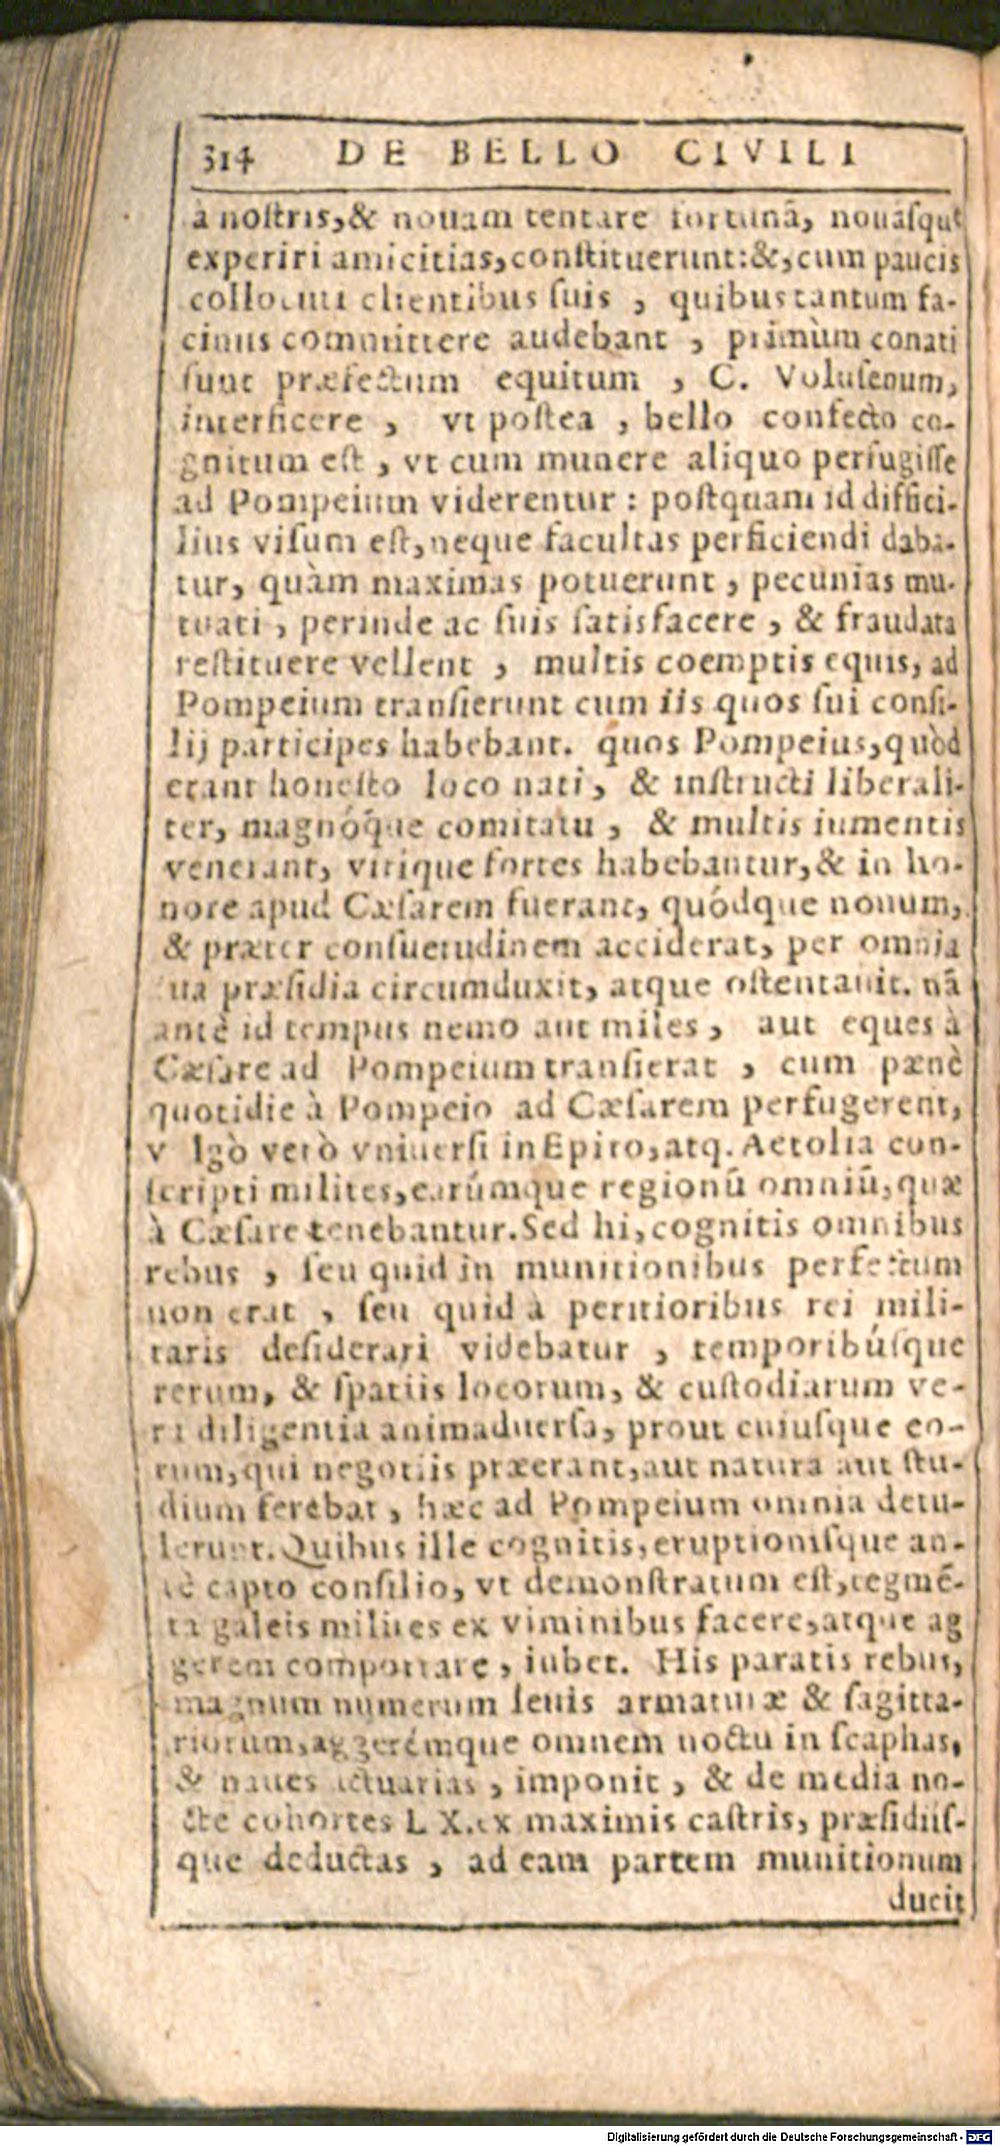 314 DE BELLO CIVILI
à nostris,& nouam tentare fortunã, nouásque
experiri amicitias,constituerunt:&,cum paucis
collocuti clientibus suis , quibus tantum fa-
cinus committere audebant , primùm conati
sunt præfectum equitum , C. Volusenum,
interficere , vt postea , bello confecto co-
gnitum est , vt cum munere aliquo perfugisse
ad Pompeium viderentur : postquam id diffici-
lius visum est,neque facultas perficiendi daba-
tur, quàm maximas potuerunt , pecunias mu-
tuati , perinde ac suis satisfacere , & fraudata
restituere vellent , multis coemptis equis, ad
Pompeium transierunt cum iis quos sui consi-
lij participes habebant. quos Pompeius,quòd
erant honesto loco nati, & instructi liberali-
ter, magnóque comitatu , & multis iumentis
venerant, virique fortes habebantur,& in ho-
nore apud Cæsarem fuerant, quódque nouum,
& præter consuetudinem acciderat, per omnia
sua præsidia circumduxit, atque ostentauit. nã
antè id tempus nemo aut miles, aut eques à
Cæsare ad Pompeium transierat , cum pænè
quotidie à Pompeio ad Cæsarem perfugerent,
v lgò verò vniuersi in Epiro,atq. Aetolia con-
scripti milites,earúmque regionū omniū,quæ
à Cæsare tenebantur.Sed hi,cognitis omnibus
rebus , seu quid in munitionibus perfectum
non erat , seu quid à peritioribus rei mili-
taris desiderari videbatur , temporibúsque
rerum, & spatiis locorum, & custodiarum ve-
ri diligentia animaduersa, prout cuiusque eo-
rum,qui negotiis præerant,aut natura aut stu-
dium ferebat , hæc ad Pompeium omnia detu-
lerunt.Quibus ille cognitis,eruptionisque an-
tè capto consilio, vt demonstratum est,tegmē-
ta galeis milites ex viminibus facere,atque ag
gerem comportare , iubet. His paratis rebus,
magnum numerum leuis armaturæ & sagitta-
riorum,aggerémque omnem noctu in scaphas,
& naues actuarias , imponit , & de media no-
cte cohortes L X.ex maximis castris, præsidiis-
que deductas , ad eam partem munitionum
ducit
Digitalisierung gefördert durch die Deutsche Forschungsgemeinschaft - DFG